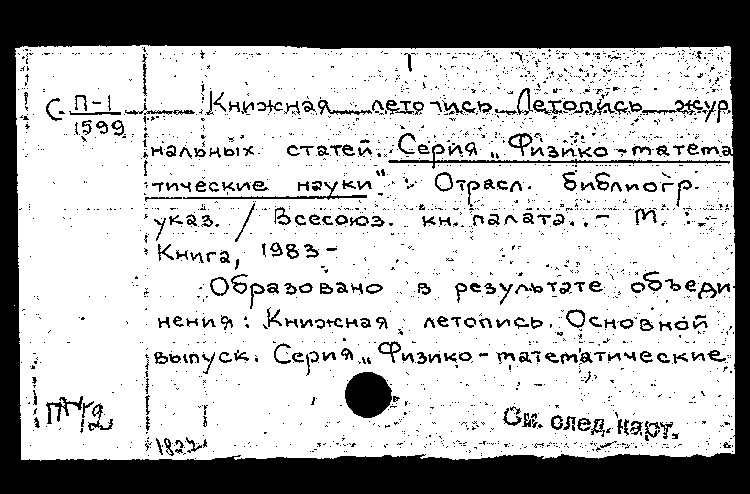 С П-1
1599
Книжная летопись. Летопись жур
нальных статей. Серия „Физико-матема
тические науки" : Отрасл. библиогр.
указ. / Всесоюз. кн. палата. - М. :
Книга, 1983 -
Образовано в результате объеди
нения: Книжная летопись. Основной
выпуск. Серия „Физико-математические
См. след. карт.